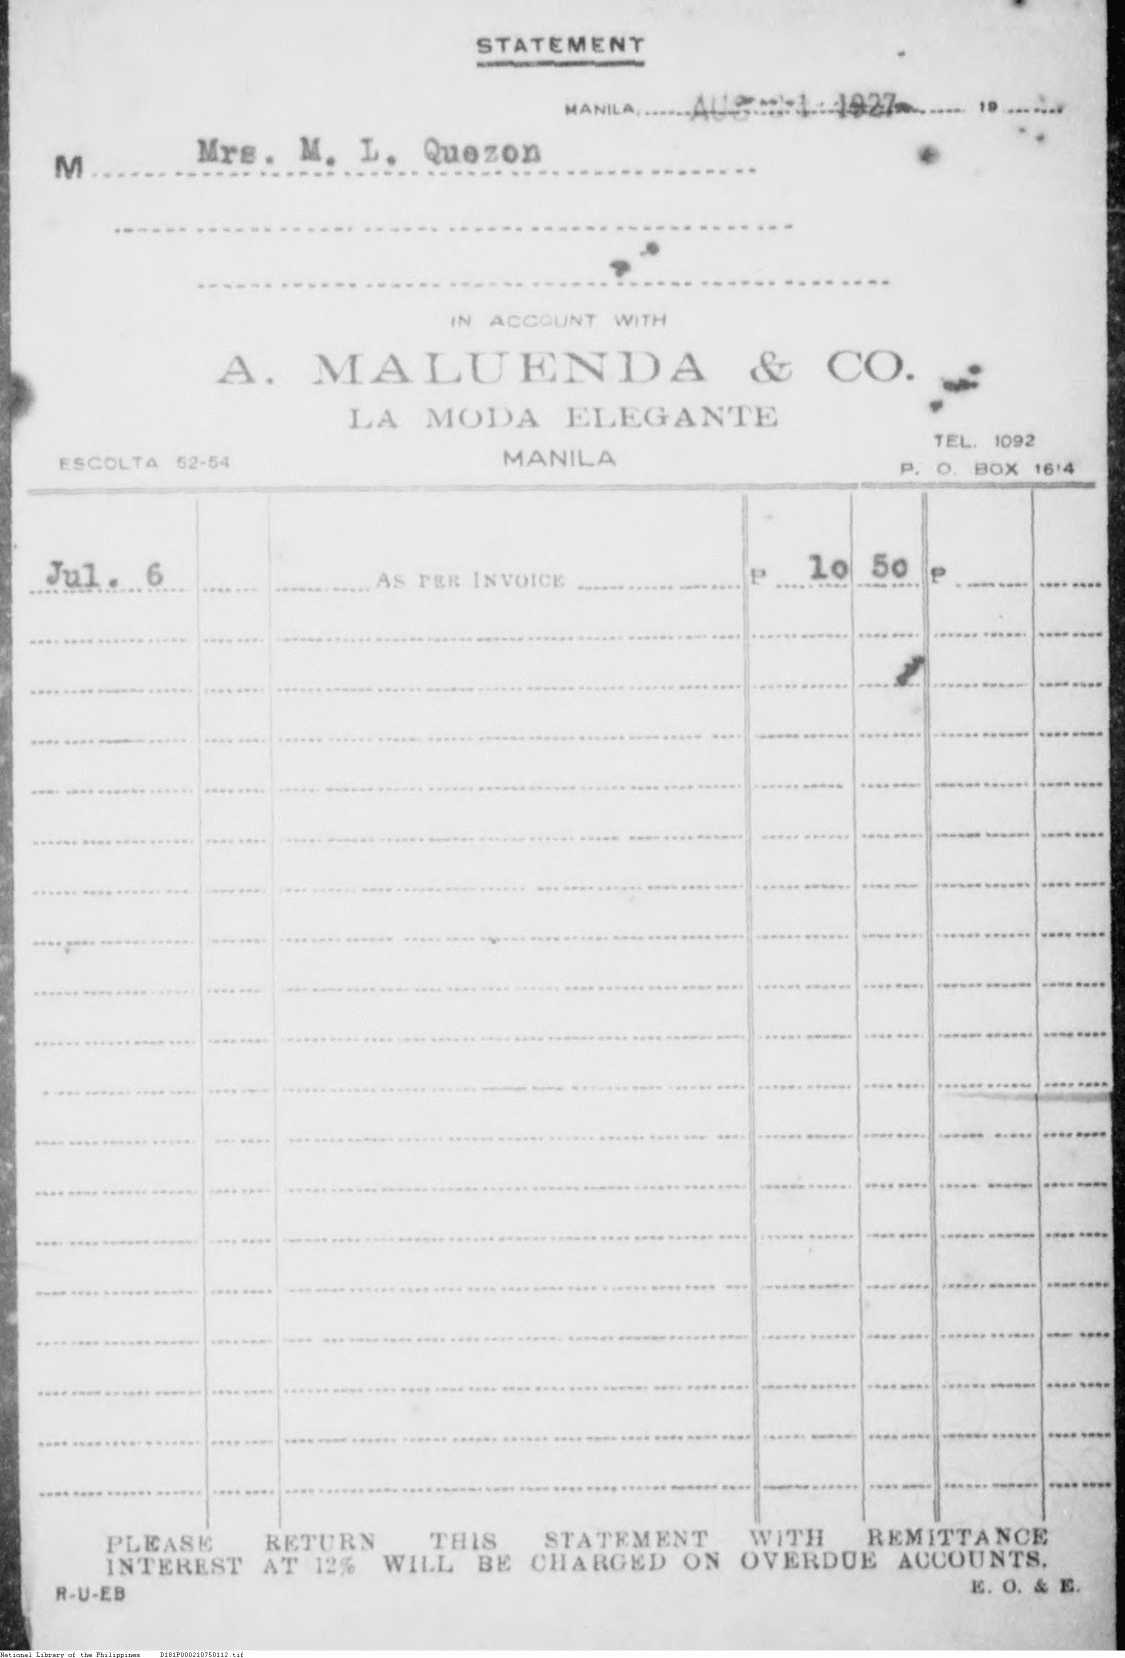 STATEMENT
MANILA, AUG 1 1927 19
M Mrs. M. L. Quezon
IN ACCOUNT WITH
A. MALUENDA & CO.
LA MODA ELEGANTE
TEL. 1092
ESCOLTA 52-54 MANILA P. O. BOX 1614
Jul. 6 AS PER INVOICE ₱ 10 50 ₱
PLEASE RETURN THIS STATEMENT WITH REMITTANCE
INTEREST AT 12% WILL BE CHARGED ON OVERDUE ACCOUNTS.
R-U-EB E. O. & E.
National Library of the Philippines D181P000210750112.tif